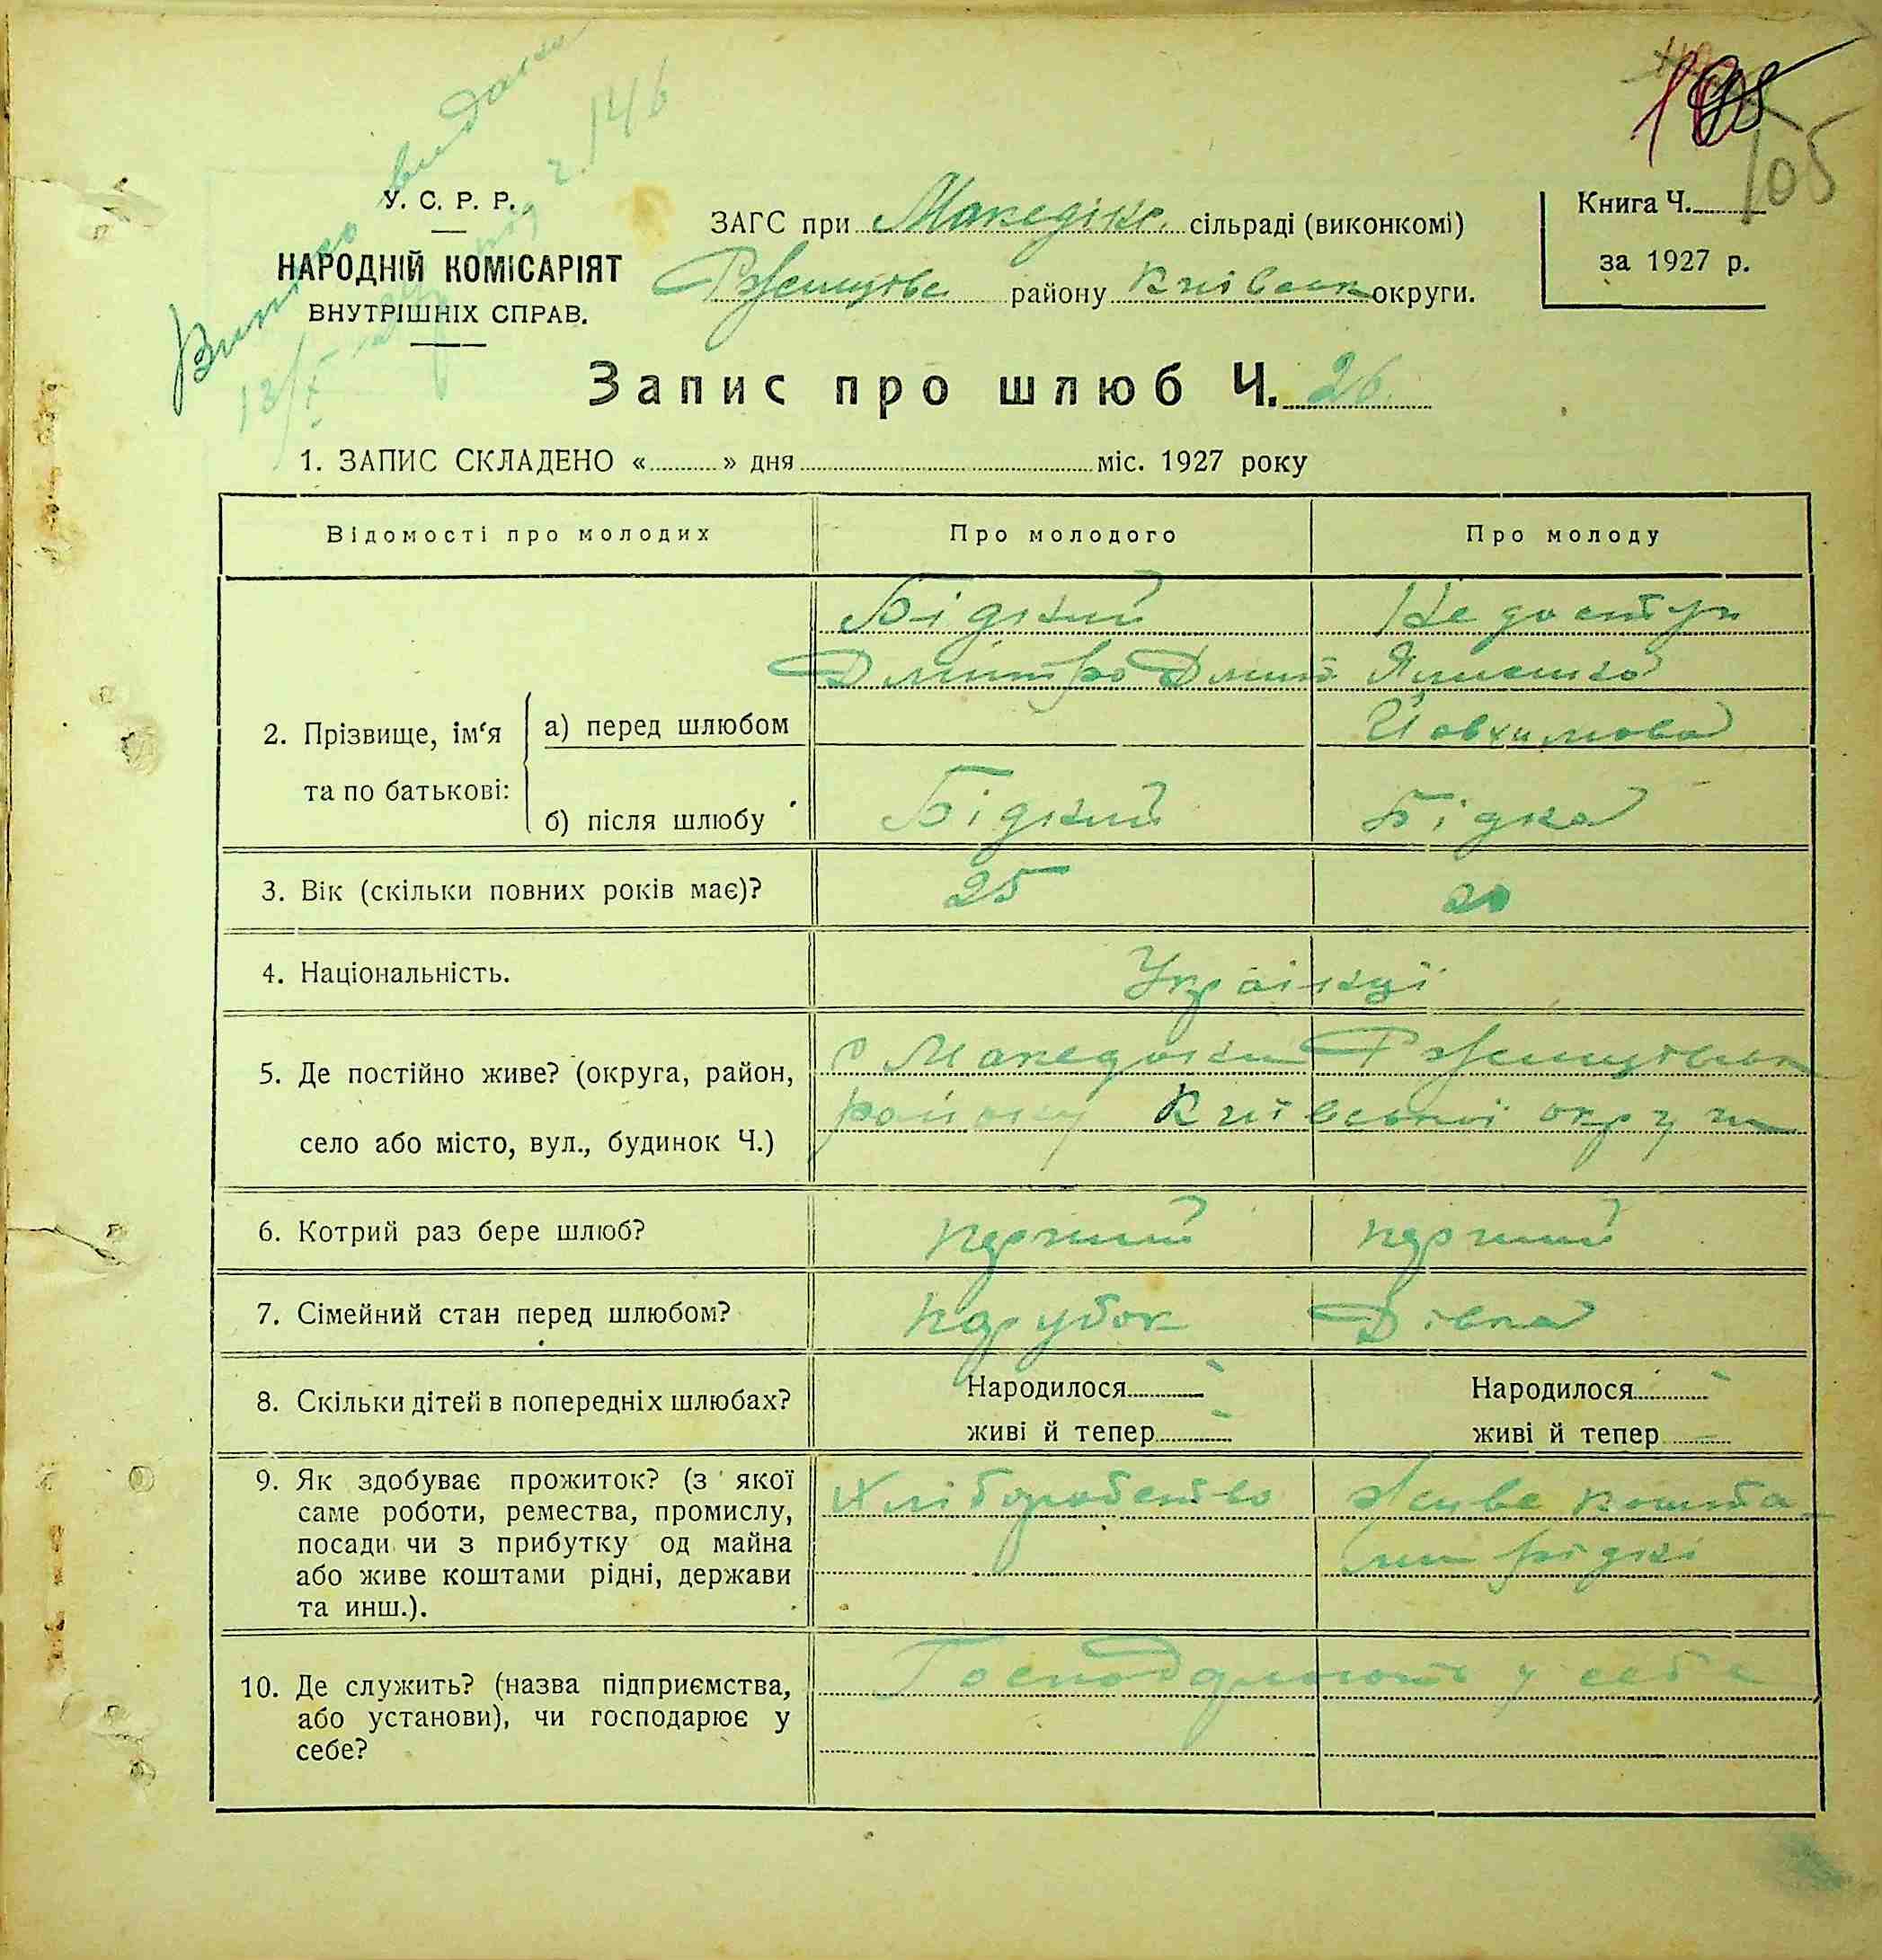 Витяг видано
13/X 29 р під ч. 146
105
105
У. С. Р. Р.
НАРОДНІЙ КОМІСАРІЯТ
ВНУТРІШНІХ СПРАВ.
ЗАГС при Македінс. сільраді (виконкомі)
Ржищівс району Київськ округи.
Книга Ч.
за 1927 р.
Запис про шлюб Ч. 26
1. ЗАПИС СКЛАДЕНО «» дня міс. 1927 року
Відомості про молодих Про молодого Про молоду
2. Прізвище, ім'я та по батькові:
а) перед шлюбом
Бідний
Дмитро Дмит
Недоступ
Явхимова
б) після шлюбу Бідний Бідна
3. Вік (скільки повних років має)? 25 20
4. Національність. Українці
5. Де постійно живе? (округа, район,
село або місто, вул., будинок Ч.)
с Македони Ржищівськ
району Київської округи
6. Котрий раз бере шлюб? перший перший
7. Сімейний стан перед шлюбом? парубок Дівка
8. Скільки дітей в попередніх шлюбах? Народилося - Народилося -
живі й тепер - живі й тепер -
9. Як здобуває прожиток? (з якої
саме роботи, ремества, промислу,
посади чи з прибутку од майна
або живе коштами рідні, держави
та инш.).
Хліборобство
живе кошта
ми рідні
10. Де служить? (назва підприємства,
або установи), чи господарює у
себе?
Господарюють у себе